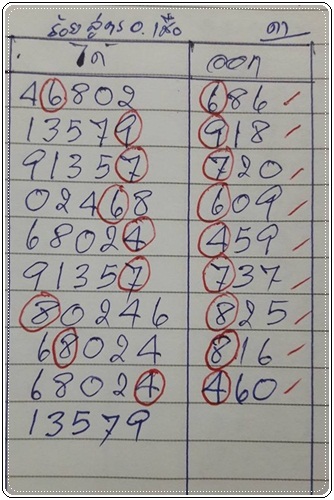 ร้อย สูตร อ. เสือ ดา
ได้ ออก
46802 686
13579 918
91357 720
02468 609
68024 459
91357 737
80246 825
68024 816
68024 460
13579